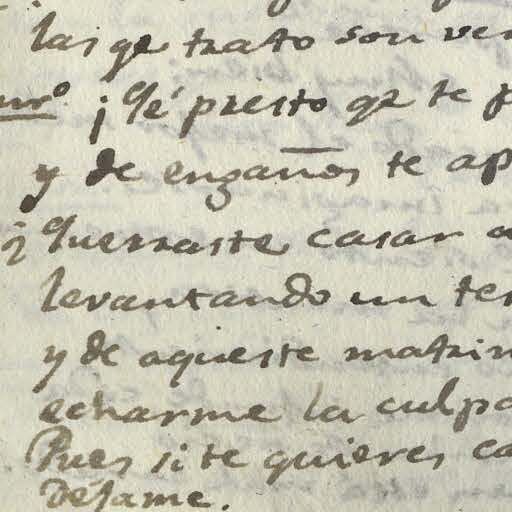 las qe trato son ver
uro ¡Qé presto qe te p
y de engaños te ap
¿Querraste casar a
levantando un tes
y de aqueste matrim
echarme la culpa
Pues si te quieres ca
Déjame.